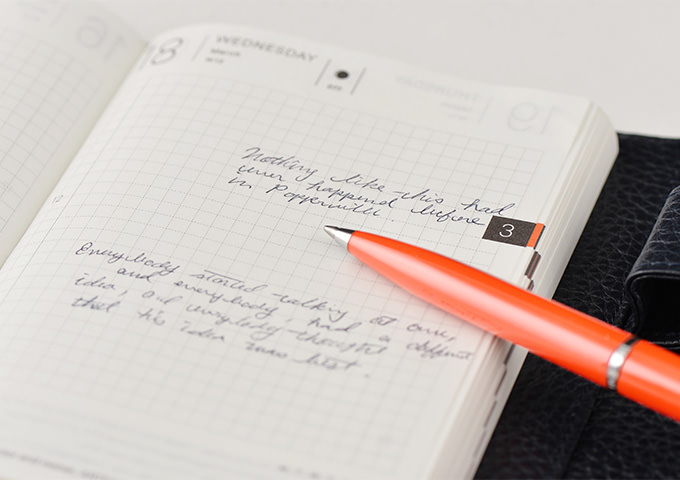 16
18 WEDNESDAY
March
THURSDAY 19
Nothing like this had
ever happend before
in Popperville.
3
12
Everybody started talking at once,
and everybody had a diffent
idea, and everybody thought
that his idea was best.